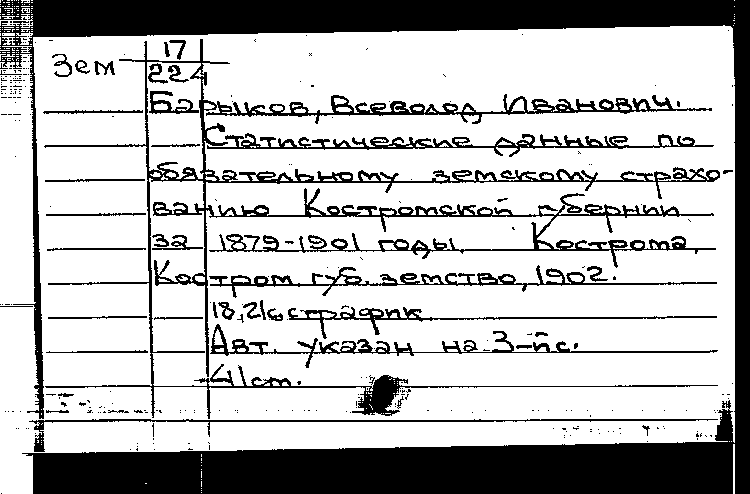 Зем 17
224
Барыков, Всеволод Иванович.
Статистические данные по
обязательному земскому страхо-
ванию Костромской губернии
за 1879-1901 годы. Кострома,
Костром. губ. земство, 1902.
18,2/с
Авт. указан на 3-й с.
41 cm.